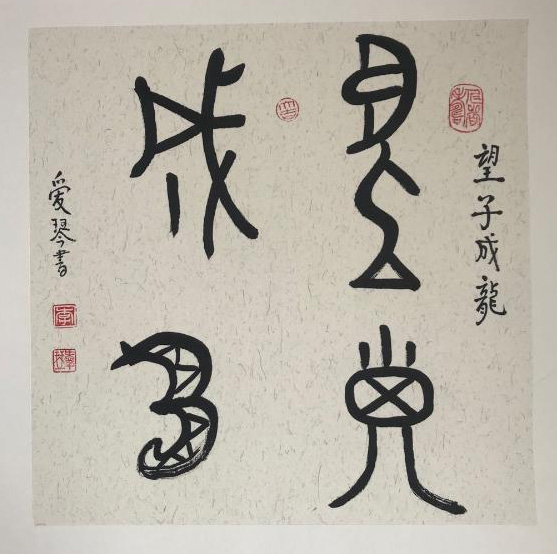 望子成龍
望子
成龍
愛琴書